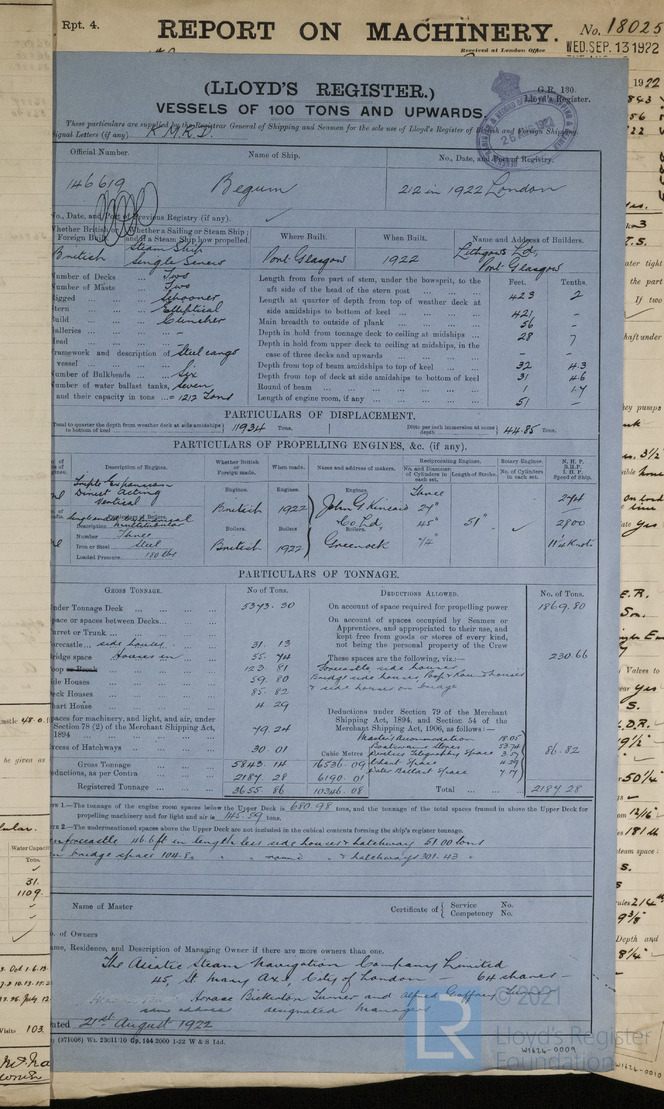 Rpt. 4.
REPORT ON MACHINERY.
No. 18025
Received at London Office
WED. SEP. 13 1922
(LLOYD'S REGISTER.)
G.R. 130.
Lloyd's Register.
VESSELS OF 100 TONS AND UPWARDS
These particulars are supplied by the Registrar General of Shipping and Seamen for the sole use of Lloyd's Register of British and Foreign Shipping.
Signal Letters (if any)
Official Number.
Name of Ship.
No., Date, and Port of Registry.
146619
Begum
212 in 1922 London
No., Date, and Port of Previous Registry (if any).
Whether British or Foreign Built.
Whether a Sailing or Steam Ship; and if a Steam Ship how propelled.
Where Built.
When Built.
Name and Address of Builders.
British
Steam Ship
Single Screw
Port Glasgow
1922
Lithgows Ld,
Port Glasgow
Number of Decks Two
Number of Masts Two
Rigged Schooner
Stern Elliptical
Build Clincher
Galleries -
Head -
Framework and description of vessel Steel
Number of Bulkheads Six
Number of water ballast tanks, Seven
and their capacity in tons 1212 Tons
Feet. Tenths.
Length from fore part of stem, under the bowsprit, to the aft side of the head of the stern post 423 2
Length at quarter of depth from top of weather deck at side amidships to bottom of keel 421 -
Main breadth to outside of plank 56 -
Depth in hold from tonnage deck to ceiling at midships 28 7
Depth in hold from upper deck to ceiling at midships, in the case of three decks and upwards - -
Depth from top of beam amidships to top of keel 32 43
Depth from top of deck at side amidships to bottom of keel 31 46
Round of beam 1 17
Length of engine room, if any 51 -
PARTICULARS OF DISPLACEMENT.
Total to quarter the depth from weather deck at side amidships to bottom of keel 11934 Tons.
Ditto per inch immersion at same depth 44.85 Tons.
PARTICULARS OF PROPELLING ENGINES, &c. (if any).
Description of Engines.
Whether British or Foreign made.
When made.
Name and address of makers.
Reciprocating Engines.
No. and Diameter of Cylinders in each set.
Length of Stroke.
Rotary Engines.
No. of Cylinders in each set.
N.H.P.
I.H.P.
Speed of Ship.
Triple Expansion
Direct Acting
Vertical
Engines. British
Engines. 1922
Engines. John G Kincaid
& Co Ld,
Greenock
Three
27"
45"
74"
51"
274
2800
11¼ Knots
Description
Number Three
Iron or Steel Steel
Loaded Pressure 180 lbs
Boilers. British
Boilers. 1922
Boilers.
PARTICULARS OF TONNAGE.
GROSS TONNAGE.
No. of Tons.
DEDUCTIONS ALLOWED.
No. of Tons.
Under Tonnage Deck 5373.30
Space or spaces between Decks
Turret or Trunk
Forecastle side houses 31.13
Bridge space Houses in 55.74
Poop or Break 123.81
Side Houses 59.80
Deck Houses 85.82
Chart House 4.29
Spaces for machinery, and light, and air, under Section 78 (2) of the Merchant Shipping Act, 1894 79.24
Excess of Hatchways 30.01
Gross Tonnage 5843.14
Deductions, as per Contra 2187.28
Registered Tonnage 3655.86
Cubic Metres
16536.09
6190.01
10346.08
On account of space required for propelling power 1869.80
On account of spaces occupied by Seamen or Apprentices, and appropriated to their use, and kept free from goods or stores of every kind, not being the personal property of the Crew 230.66
These spaces are the following, viz.:—
Forecastle side houses,
Bridge side houses, Poop
& side houses on bridge
Deductions under Section 79 of the Merchant Shipping Act, 1894, and Section 54 of the Merchant Shipping Act, 1906, as follows:—
Master's Accommodation 18.05
Boatswain's Stores
Wireless Telegraphy Space
Chart Space 4.29
Water Ballast Space
86.82
Total 2187.28
NOTE 1.—The tonnage of the engine room spaces below the Upper Deck is 680.98 tons, and the tonnage of the total spaces framed in above the Upper Deck for propelling machinery and for light and air is 145.59 tons.
NOTE 2.—The undermentioned spaces above the Upper Deck are not included in the cubical contents forming the ship's register tonnage.
forecastle 46.6 ft in length less side houses & hatchway 51.00 tons
bridge space 104.8 & hatchways 301.43
Name of Master
Certificate of { Service No.
Competency No.
No. of Owners
Name, Residence, and Description of Managing Owner if there are more owners than one.
The Asiatic Steam Navigation Company Limited
45, St Mary Axe, City of London — 64 shares —
Horace Bickerton Turner and Alfred
same address designated Managers
Dated 21st August 1922
(371008) Wt. 23011/10 Gp. 144 2000 1-22 W & S Ltd.
© 2021
LR
Lloyd's Register
Foundation
W1626-0009
W1626-0010